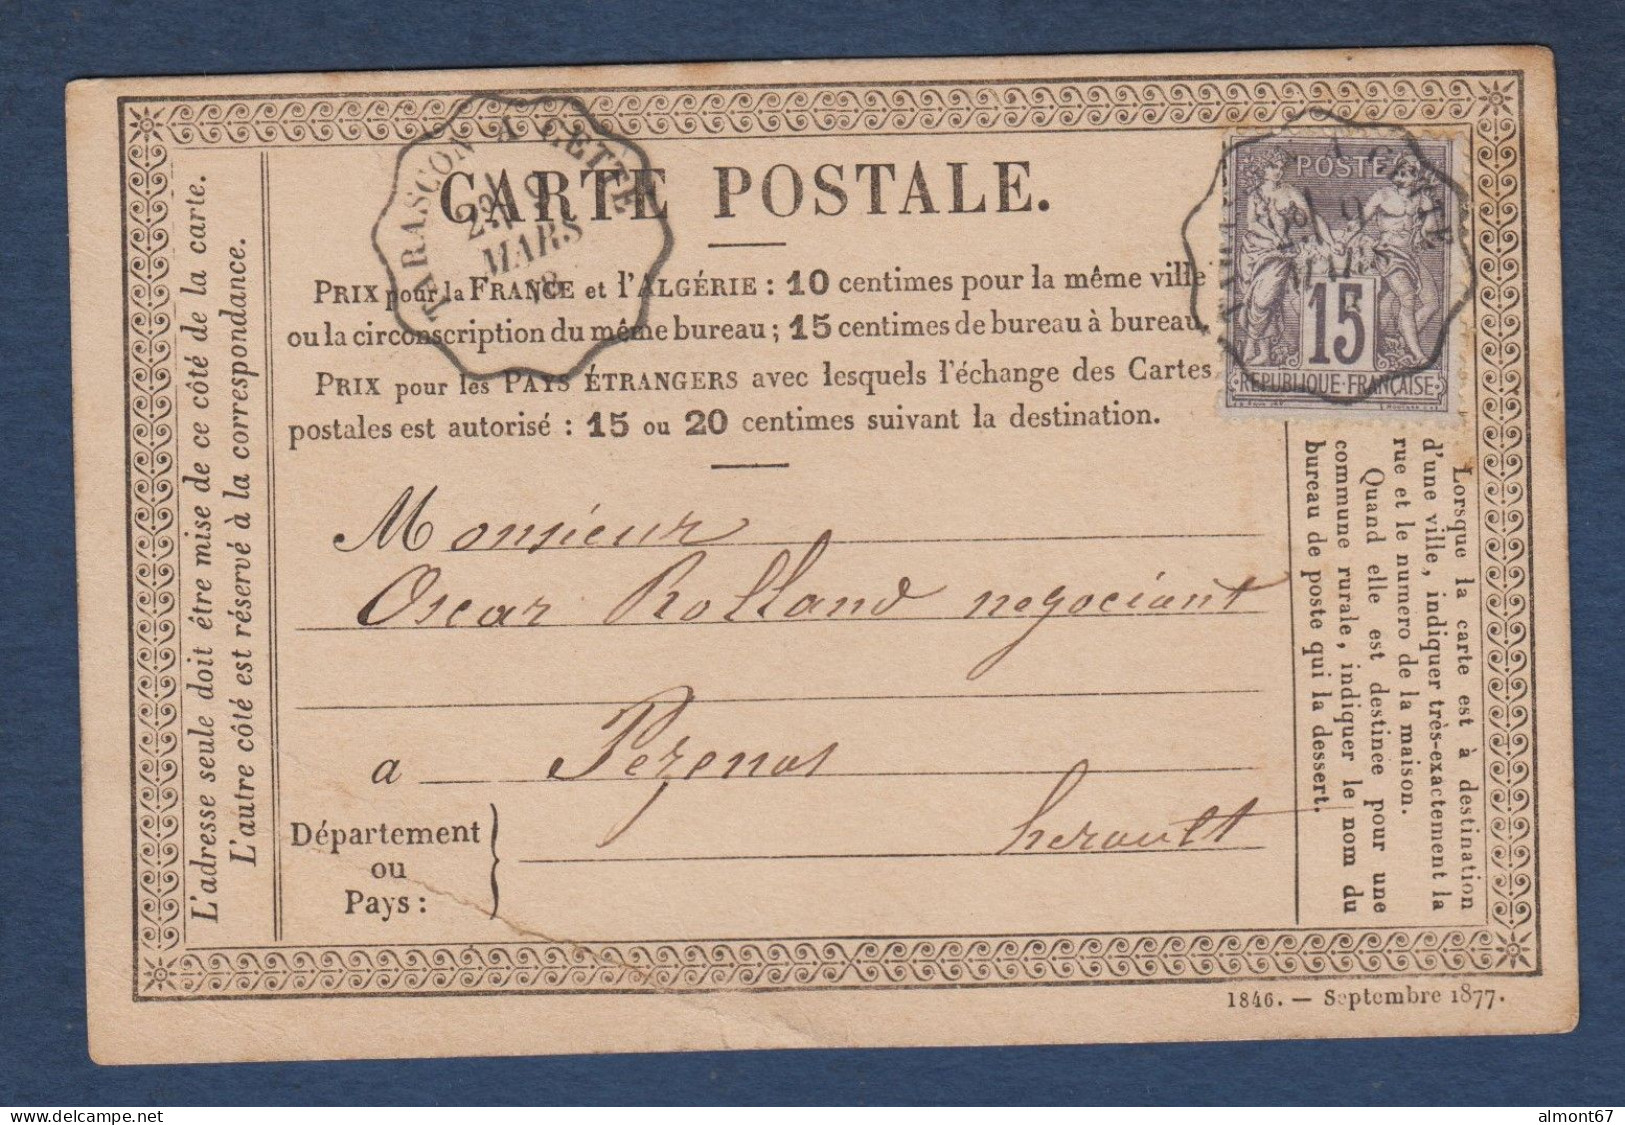 CARTE POSTALE.
TARASCON A CETTE
9
MARS
78
POSTE
A CETTE
9
MARS
15
REPUBLIQUE FRANÇAISE
PRIX pour la FRANCE et l'ALGÉRIE : 10 centimes pour la même ville
ou la circonscription du même bureau ; 15 centimes de bureau à bureau.
PRIX pour les PAYS ÉTRANGERS avec lesquels l'échange des Cartes
postales est autorisé : 15 ou 20 centimes suivant la destination.
Monsieur
Oscar Rolland negociant
a Pezenas
Département
ou
Pays :
herault
L'adresse seule doit être mise de ce côté de la carte.
L'autre côté est réservé à la correspondance.
Lorsque la carte est à destination
d'une ville, indiquer très-exactement la
rue et le numero de la maison.
Quand elle est destinée pour une
commune rurale, indiquer le nom du
bureau de poste qui la dessert.
1846. — Septembre 1877.
almont67